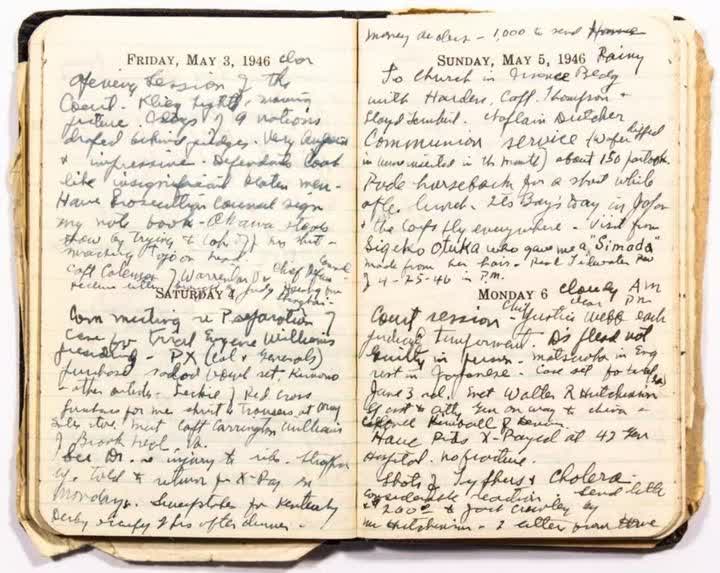 FRIDAY, MAY 3, 1946 clear
Opening Session of the
Court. Klieg lights, moving
picture. Flags of 9 nations
draped behind judges. Very
& impressive. Defendants look
like insignificant beaten men -
Have Prosecution Counsel sign
my note book - Okawa steals
show by trying to take off his shirt -
smacking Tojo on head
Capt Coleman of Warrenton Va Chief Defense Counsel
SATURDAY 4
Com meeting re Preparation of
Case for trial Eugene Williams
presiding - PX (Col & Generals)
purchased salad bowl set. Kimono
- other articles. Red Cross
purchase for me shirt & trousers at Army
Sales store. Met Capt Carrington Williams
of Brook
See Dr. re injury to rib.
told to return for X-Ray on
Monday. Sweepstakes for Kentucky
Derby after dinner -
money orders - 1,000 to send Home
SUNDAY, MAY 5, 1946 Rainy
To Church in Finance Bldg
with Harden, Capt. Thompson &
Lloyd Chaplain Dutcher
Communion service (Wafer dipped
in wine inserted in the mouth) about 150 partook
Rode horseback for a short while
after lunch. It's Boy's Day in Japan
& the carp fly everywhere - Visit from
Sigeko Otuka who gave me a "Simada"
made from her hair - Read Tidewater Rev
of 4-25-46 in P.M.
MONDAY 6 cloudy AM
clear P.M.
Court session - Chief Justice Webb reads
judicial temperament. D's plead not
guilty in person - Matsuoka in Eng
rest in Japanese - Case set for trial
June 3rd. Met Walter R Hutchinson
Asst to Atty Gen on way to China -
Colonel Kimball of
Have Ribs X-Rayed at 42 Gen
Hospital. no fracture.
Shots of Typhus & Cholera -
considerable reaction - Send
$200 to by
Mr Hutchinson - 2 letters from